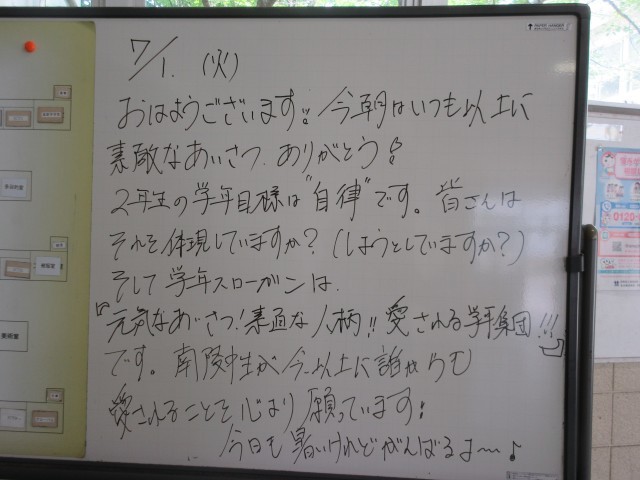 7/1.(火)
おはようございます!! 今朝はいつも以上に
素敵なあいさつ、ありがとう!
2年生の学年目標は"自律"です。皆さんは
それを体現していますか?(しようとしていますか?)
そして学年スローガンは、
『元気なあいさつ!素適な人柄!!愛される学年集団!!!』
です。南陵中生が今以上に誰からも
愛されることを心より願っています!
今日も暑いけれどがんばるよ〜♪
0120